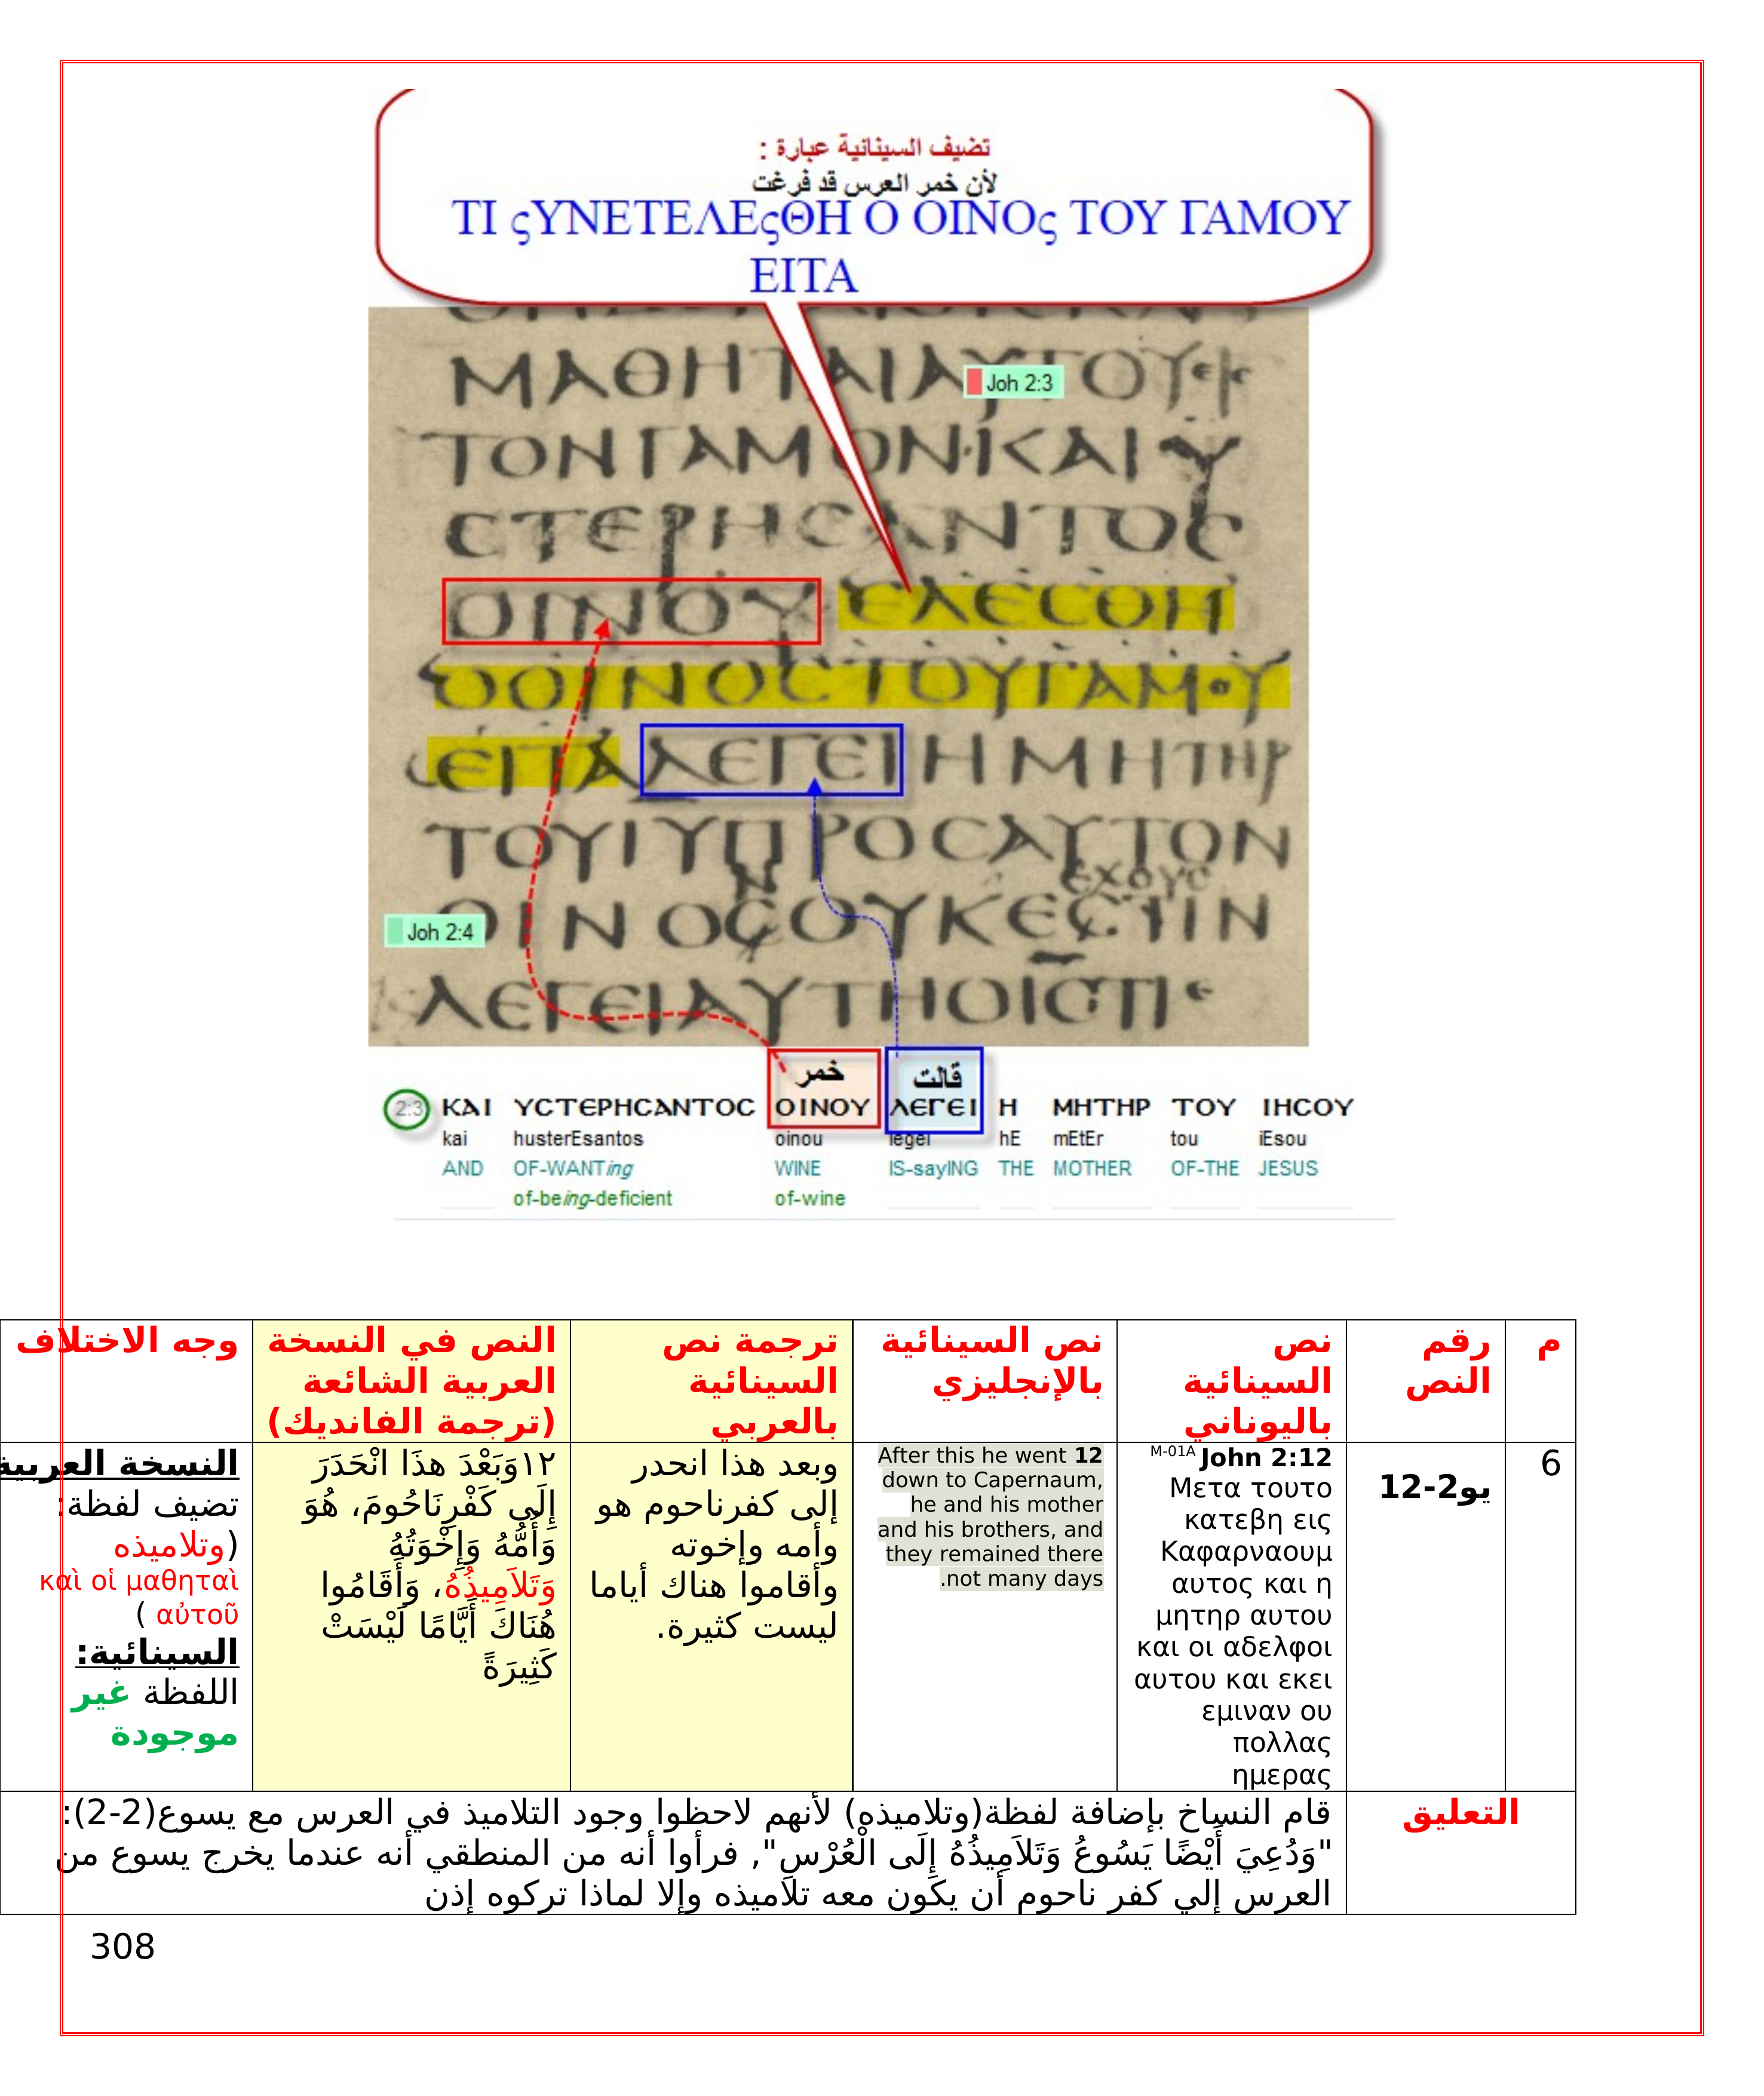 تضيف السينائية عبارة :
لأن خمر العرس قد فرغت
ΤΙ ςΥΝΕΤΕΛΕςΘΗ Ο ΟΙΝΟς ΤΟΥ ΓΑΜΟΥ
ΕΙΤΑ
ΜΑΘΗΤΑΙΑΥΤΟΥ
Joh 2:3
ΤΟΝΓΑΜΟΝ·ΚΑΙ Υ
CΤΕΡΗCΑΝΤΟC
ΟΙΝΟΥ ΕΛΕCΘΗ
ΟΟΙΝΟCΤΟΥΓΑΜΟΥ
ΕΙΤΑ ΛΕΓΕΙ Η ΜΗΤΗΡ
ΤΟΥΙΥΠΡΟCΑΥΤΟΝ
ΟΙΝΟCΟΥΚΕCΤΙΝ
Joh 2:4
ΛΕΓΕΙΑΥΤΗΟΙCΤΙ
خمر قالت
2:3 ΚΑΙ ΥCΤΕΡΗCΑΝΤΟC ΟΙΝΟΥ ΛΕΓΕΙ Η ΜΗΤΗΡ ΤΟΥ ΙΗCΟΥ
kai husterEsantos oinou legei hE mEtEr tou iEsou
AND OF-WANTing WINE IS-sayING THE MOTHER OF-THE JESUS
of-being-deficient of-wine
م
رقم
النص
نص
السينائية
باليوناني
نص السينائية
بالإنجليزي
ترجمة نص
السينائية
بالعربي
النص في النسخة
العربية الشائعة
(ترجمة الفانديك)
وجه الاختلاف
6
يو2-12
M-01A John 2:12
Μετα τουτο
κατεβη εις
Καφαρναουμ
αυτος και η
μητηρ αυτου
και οι αδελφοι
αυτου και εκει
εμιναν ου
πολλας
ημερας
After this he went 12
down to Capernaum,
he and his mother
and his brothers, and
they remained there
.not many days
وبعد هذا انحدر
إلى كفرناحوم هو
وأمه وإخوته
وأقاموا هناك أياما
ليست كثيرة.
١٢وَبَعْدَ هذَا انْحَدَرَ
إِلَى كَفْرِنَاحُومَ، هُوَ
وَأُمُّهُ وَإِخْوَتُهُ
وَتَلاَمِيذُهُ، وَأَقَامُوا
هُنَاكَ أَيَّامًا لَيْسَتْ
كَثِيرَةً
النسخة العربية
تضيف لفظة:
(وتلاميذه
καὶ οἱ μαθηταὶ
αὐτοῦ )
السينائية:
اللفظة غير
موجودة
التعليق
قام النساخ بإضافة لفظة(وتلاميذه) لأنهم لاحظوا وجود التلاميذ في العرس مع يسوع(2-2):
"وَدُعِيَ أَيْضًا يَسُوعُ وَتَلاَمِيذُهُ إِلَى الْعُرْسِ", فرأوا أنه من المنطقي أنه عندما يخرج يسوع من
العرس إلي كفر ناحوم أن يكون معه تلاميذه وإلا لماذا تركوه إذن
308